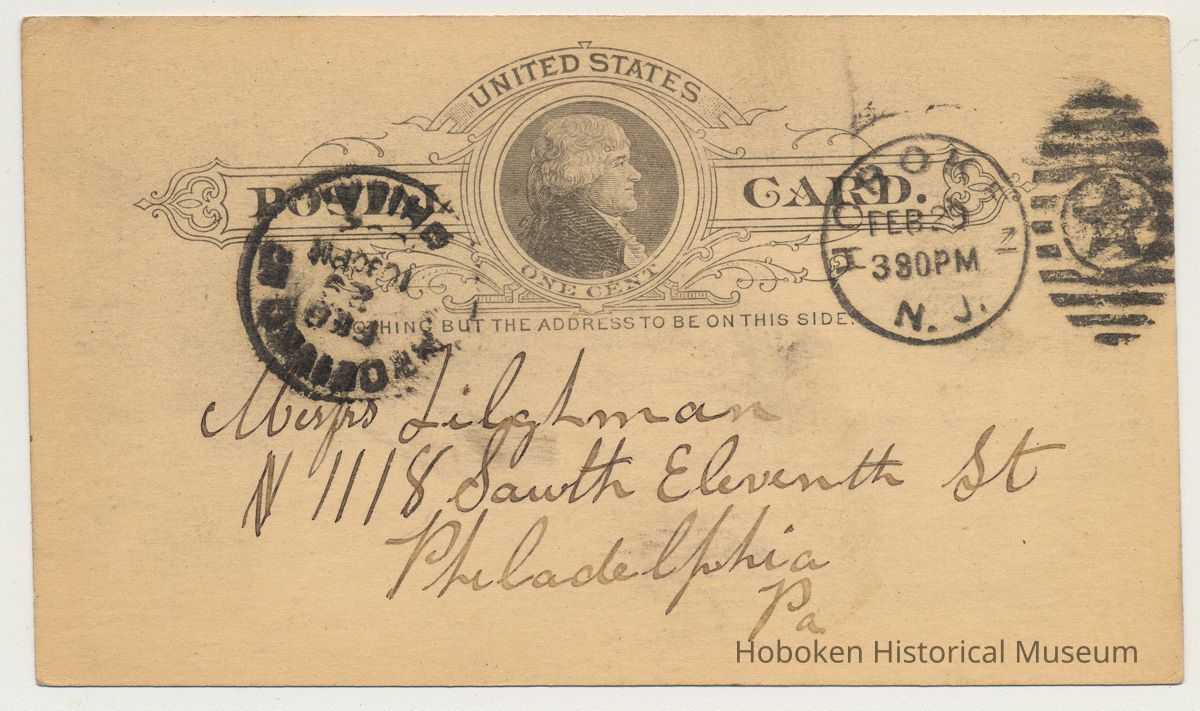 UNITED STATES
POSTAL CARD.
ONE CENT
NOTHING BUT THE ADDRESS TO BE ON THIS SIDE.
HOBOKEN
FEB 29
330PM
N. J.
PHILA
FEB
RECEIVED
Tilghman
N 1118 Sawth Eleventh St
Philadelphia
Pa
Hoboken Historical Museum